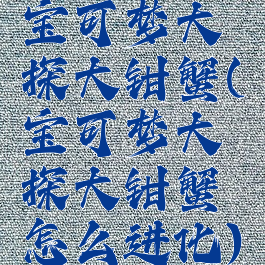 宝可梦大
探大钳蟹(
宝可梦大
探大钳蟹
怎么进化)